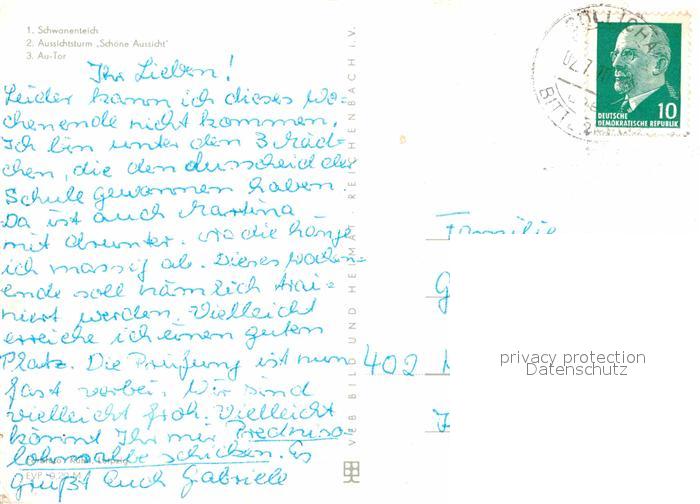 1. Schwanenteich
2. Aussichtsturm „Schöne Aussicht"
3. Au-Tor
Ihr Lieben!
Leider kann ich dieses Wo-
chenende nicht kommen.
Ich bin unter den 3 Mäd-
chen, die den Ausscheid der
Schule gewonnen haben.
Da ist auch Martina
mit drunter. Na die hänge
ich massig ab. Dieses Wochen-
ende soll nämlich trai-
niert werden. Vielleicht
erreiche ich einen guten
Platz. Die Prüfung ist nun
fast vorbei. Wir sind
vielleicht froh. Vielleicht
könnt Ihr mir Predniso-
lohnsalbe schicken. Es
grüßt Euch Gabriele
VEB BILD UND HEIMAT REICHENBACH i. V.
DEUTSCHE
DEMOKRATISCHE REPUBLIK
10
Familie
G
402
privacy protection
Datenschutz